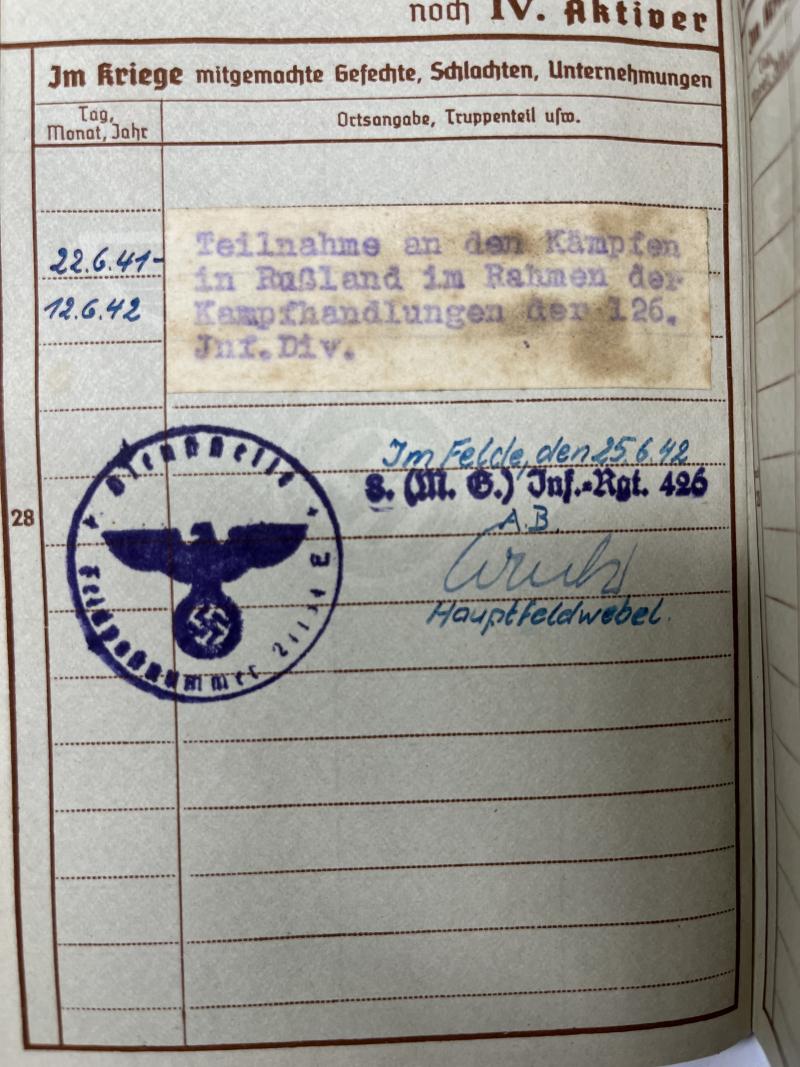 noch IV. Aktiver
Im Kriege mitgemachte Gefechte, Schlachten, Unternehmungen
Tag,
Monat, Jahr
Ortsangabe, Truppenteil usw.
22.6.41-
12.6.42
Teilnahme an den Kämpfen
in Rußland im Rahmen der
Kampfhandlungen der 126.
Inf.Div.
Im Felde, den 25.6.42
8. (M. G.) Inf.-Rgt. 426
A.B.
Hauptfeldwebel.
28
Dienststelle
Feldpostnummer